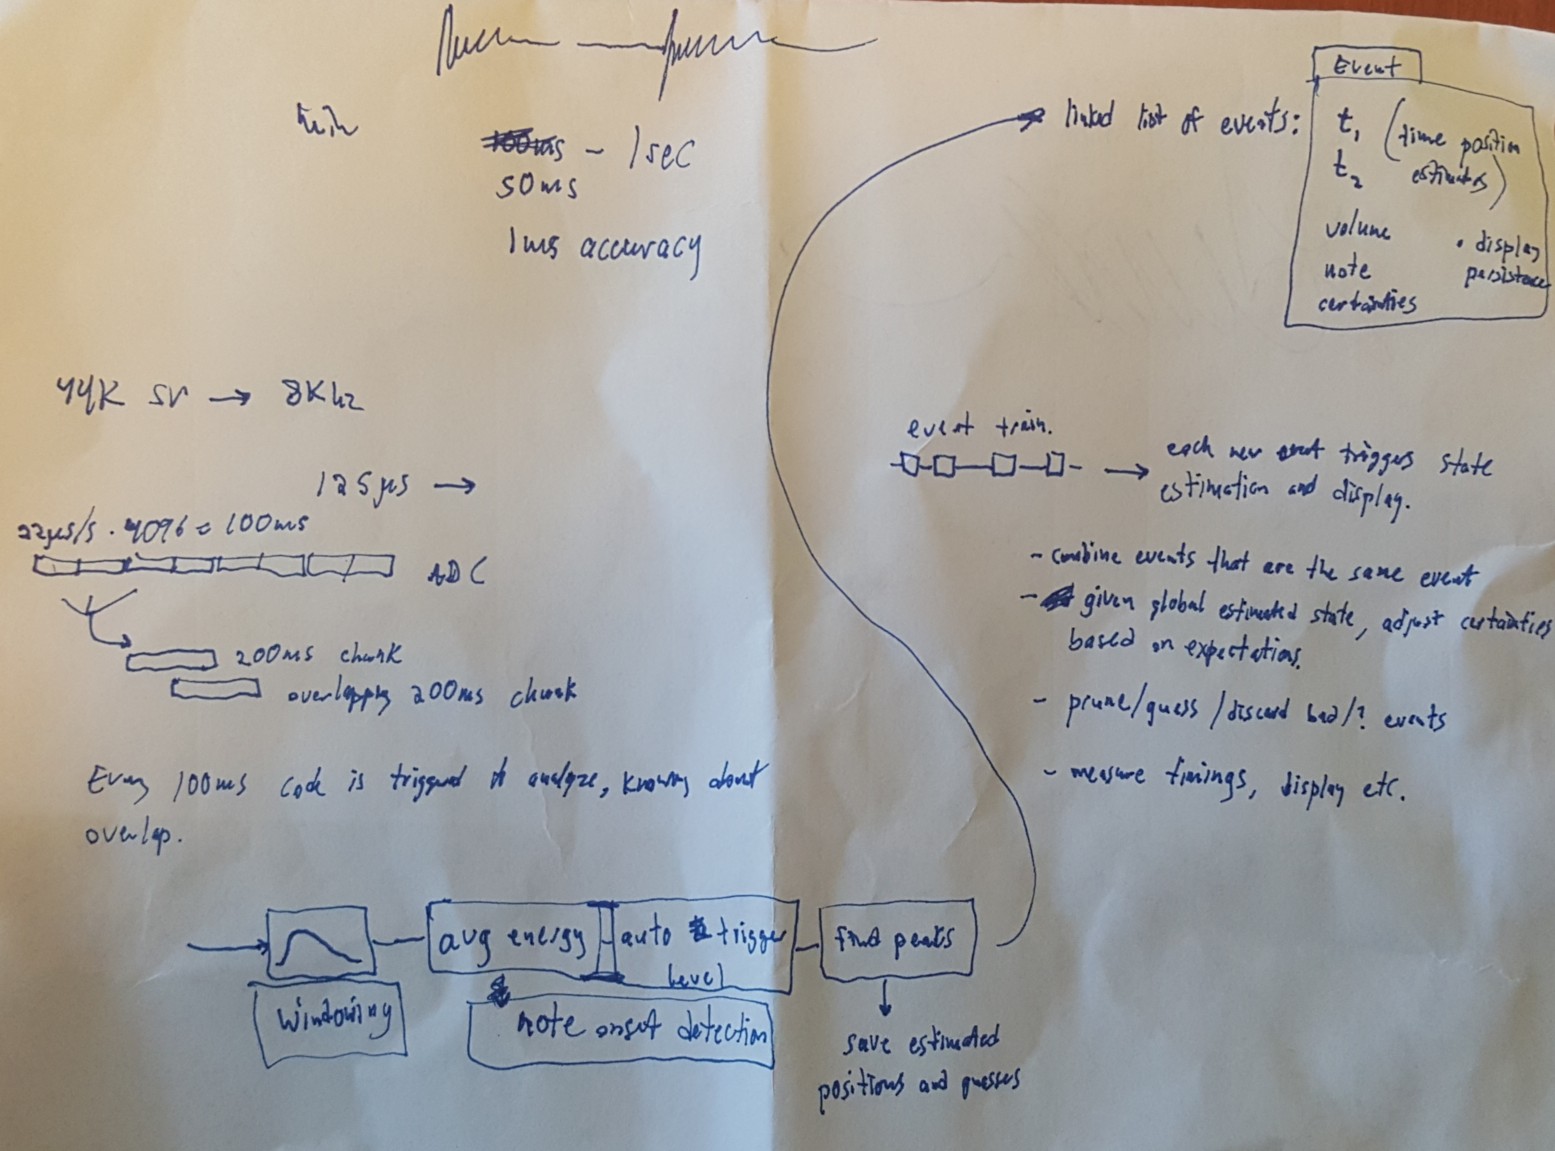 50ms - 1sec
1ms accuracy
44K sr → 8Khz
125μs →
22μs/s · 4096 = 100ms
ADC
200ms chunk
overlapping 200ms chunk
Every 100ms code is triggered to analyze, knowing about
overlap.
windowing
avg energy
auto trigger
level
note onset detection
find peaks
save estimated
positions and guesses
linked list of events:
Event
t₁ (time position
t₂ estimates)
volume
note
certainties
• display
persistence
event train.
each new event triggers state
estimation and display.
- combine events that are the same event
- given global estimated state, adjust certainties
based on expectations.
- prune/guess/discard bad/? events
- measure timings, display etc.